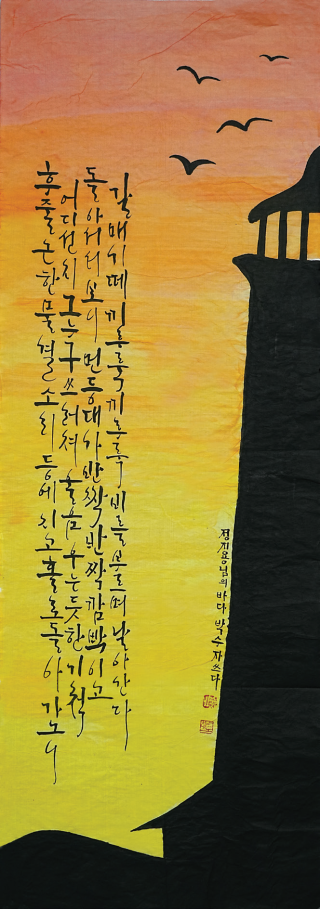 갈매기떼 끼루룩 끼루룩 비를 부르며 날아간다
돌아서서 보니 먼 등대가 반짝 반짝 깜박이고
어디선지 그 누구 쓰러져 울음 우는듯한 기척
후줄근한 물결소리 등에 지고 홀로 돌아가노니
정끼용님의 바다 박수자 쓰다